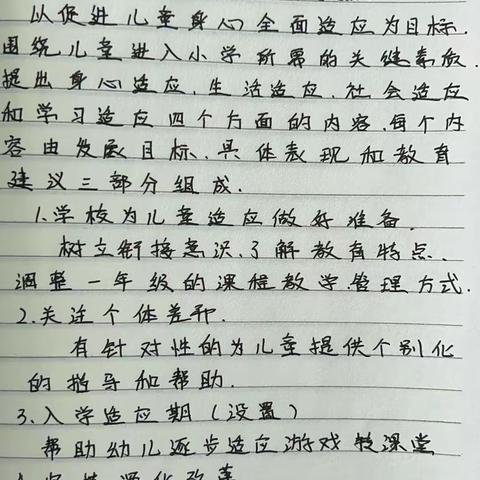 以促进儿童身心全面适应为目标.
围绕儿童进入小学所需的关键素质.
提出身心适应.生活适应.社会适应
和学习适应四个方面的内容.每个内
容由发展目标.具体表现和教育
建议三部分组成.
1.学校为儿童适应做好准备.
树立衔接意识.了解教育特点.
调整一年级的课程教学.管理方式.
2.关注个体差异.
有针对性的为儿童提供个别化
的指导和帮助.
3.入学适应期(设置)
帮助幼儿逐步适应游戏 课堂